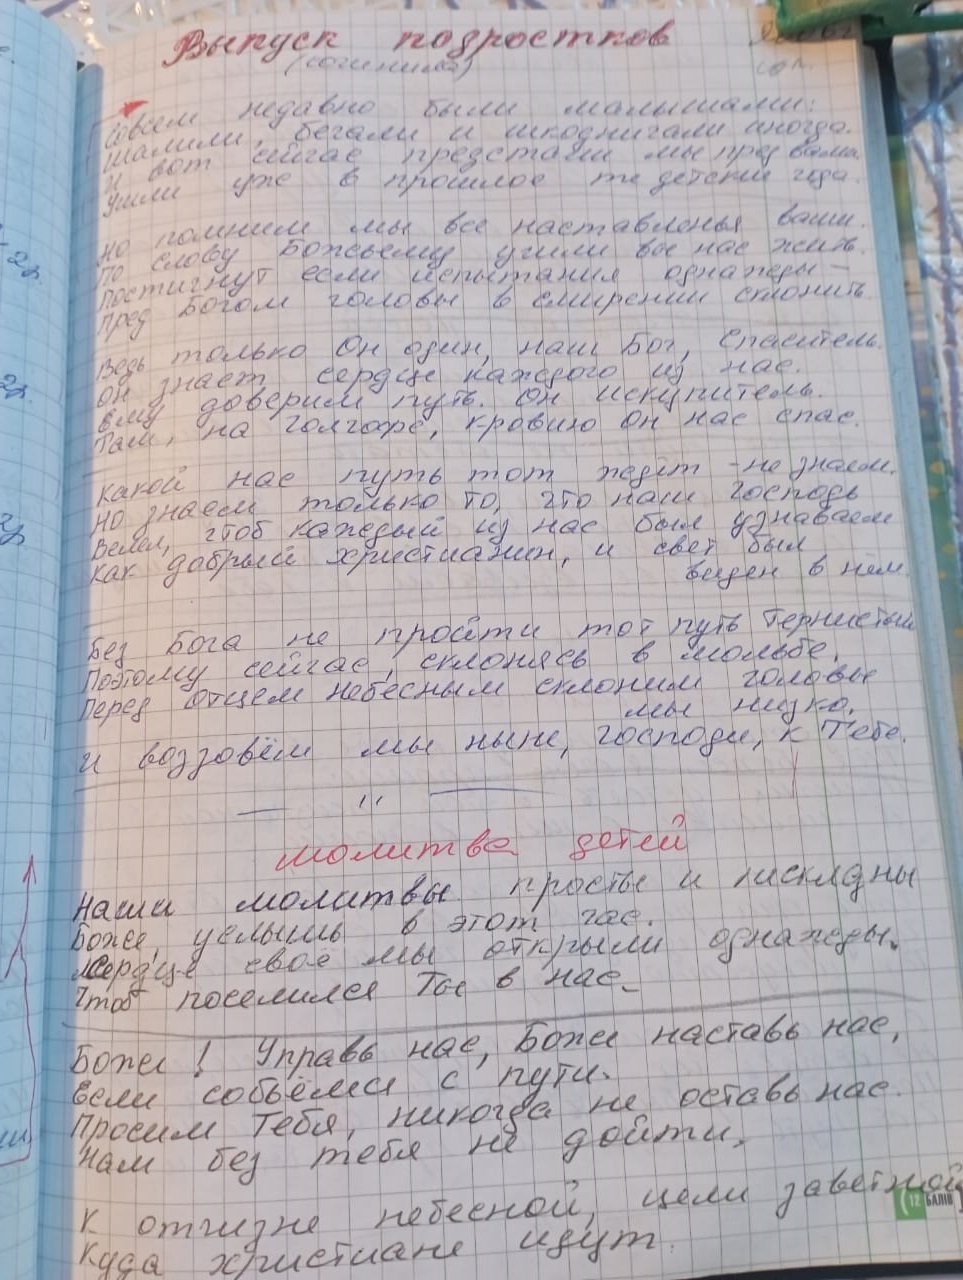 Выпуск подростков
(сочинила)
Совсем недавно были малышами:
Шалили, бегали и шкодничали иногда.
И вот сейчас предстали мы пред вами,
Ушли уже в прошлое те детские года.
Но помним мы все наставленья ваши.
По слову Божьему учили все нас жить.
Постигнут если испытания однажды –
Пред Богом головы в смирении склонить.
Ведь только Он один, наш Бог, Спаситель.
Он знает сердце каждого из нас.
Ему доверим путь. Он искупитель.
Там, на Голгофе, кровию Он нас спас.
Какой нас путь тот ждёт – не знаем.
Но знаем только то, что наш Господь
Велел, чтоб каждый из нас был узнаваем
Как добрый христианин, и свет был
виден в нём.
Без Бога не пройти тот путь тернистый
Поэтому сейчас, склонясь в мольбе,
Перед отцем небесным склоним головы
мы низко.
И воззовём мы ныне, господи, к Тебе.
— " —
Молитва детей
Наши молитвы просты и нискладны
Боже, услышь в этот час.
Сердце своё мы открыли однажды,
Чтоб поселился Ты в нас.
Боже! Управь нас, Боже наставь нас,
Если собьёмся с пути.
Просим Тебя, никогда не оставь нас.
Нам без тебя не дойти.
К отчизне небесной, цели заветной
Куда христиане идут.
12 БАЛІВ